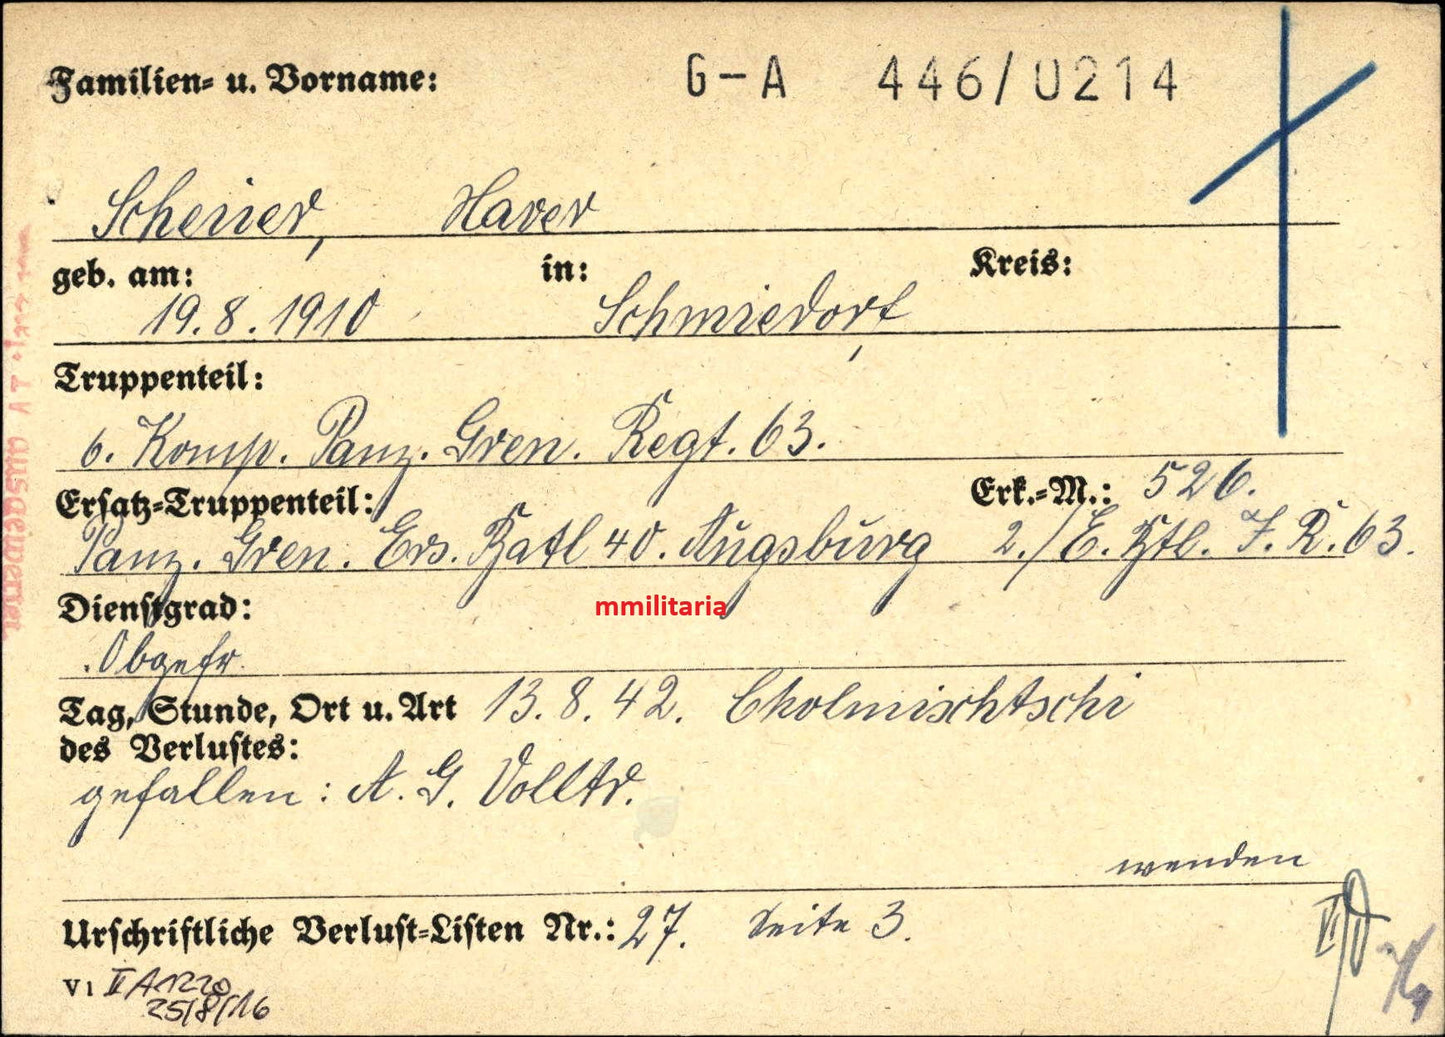 Familien- u. Vorname: G-A 446/U214
Scheiier, Xaver
geb. am: in: Kreis:
19.8.1910 Schmiedorf
Truppenteil:
6. Komp. Panz. Gren. Regt. 63.
Ersatz-Truppenteil: Erk.-M.: 526.
Panz. Gren. Ers. Batl 40. Augsburg 2./E. Btl. I. R. 63.
Dienstgrad:
mmilitaria
Obgefr.
Tag, Stunde, Ort u. Art 13.8.42. Cholmischtschi
des Verlustes:
gefallen: A. G. Volltr.
wenden
Urschriftliche Verlust-Listen Nr.: 27. Seite 3.
V1 II A 1220
25/8/16